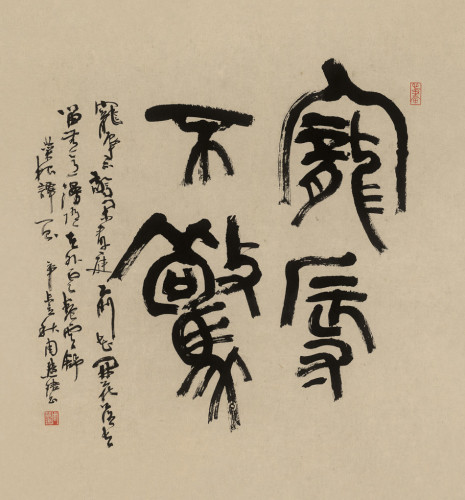 寵辱
不驚
寵辱不驚閑看庭前花開花落去
留無意漫隨天外雲卷雲舒
菜根譚 秋周